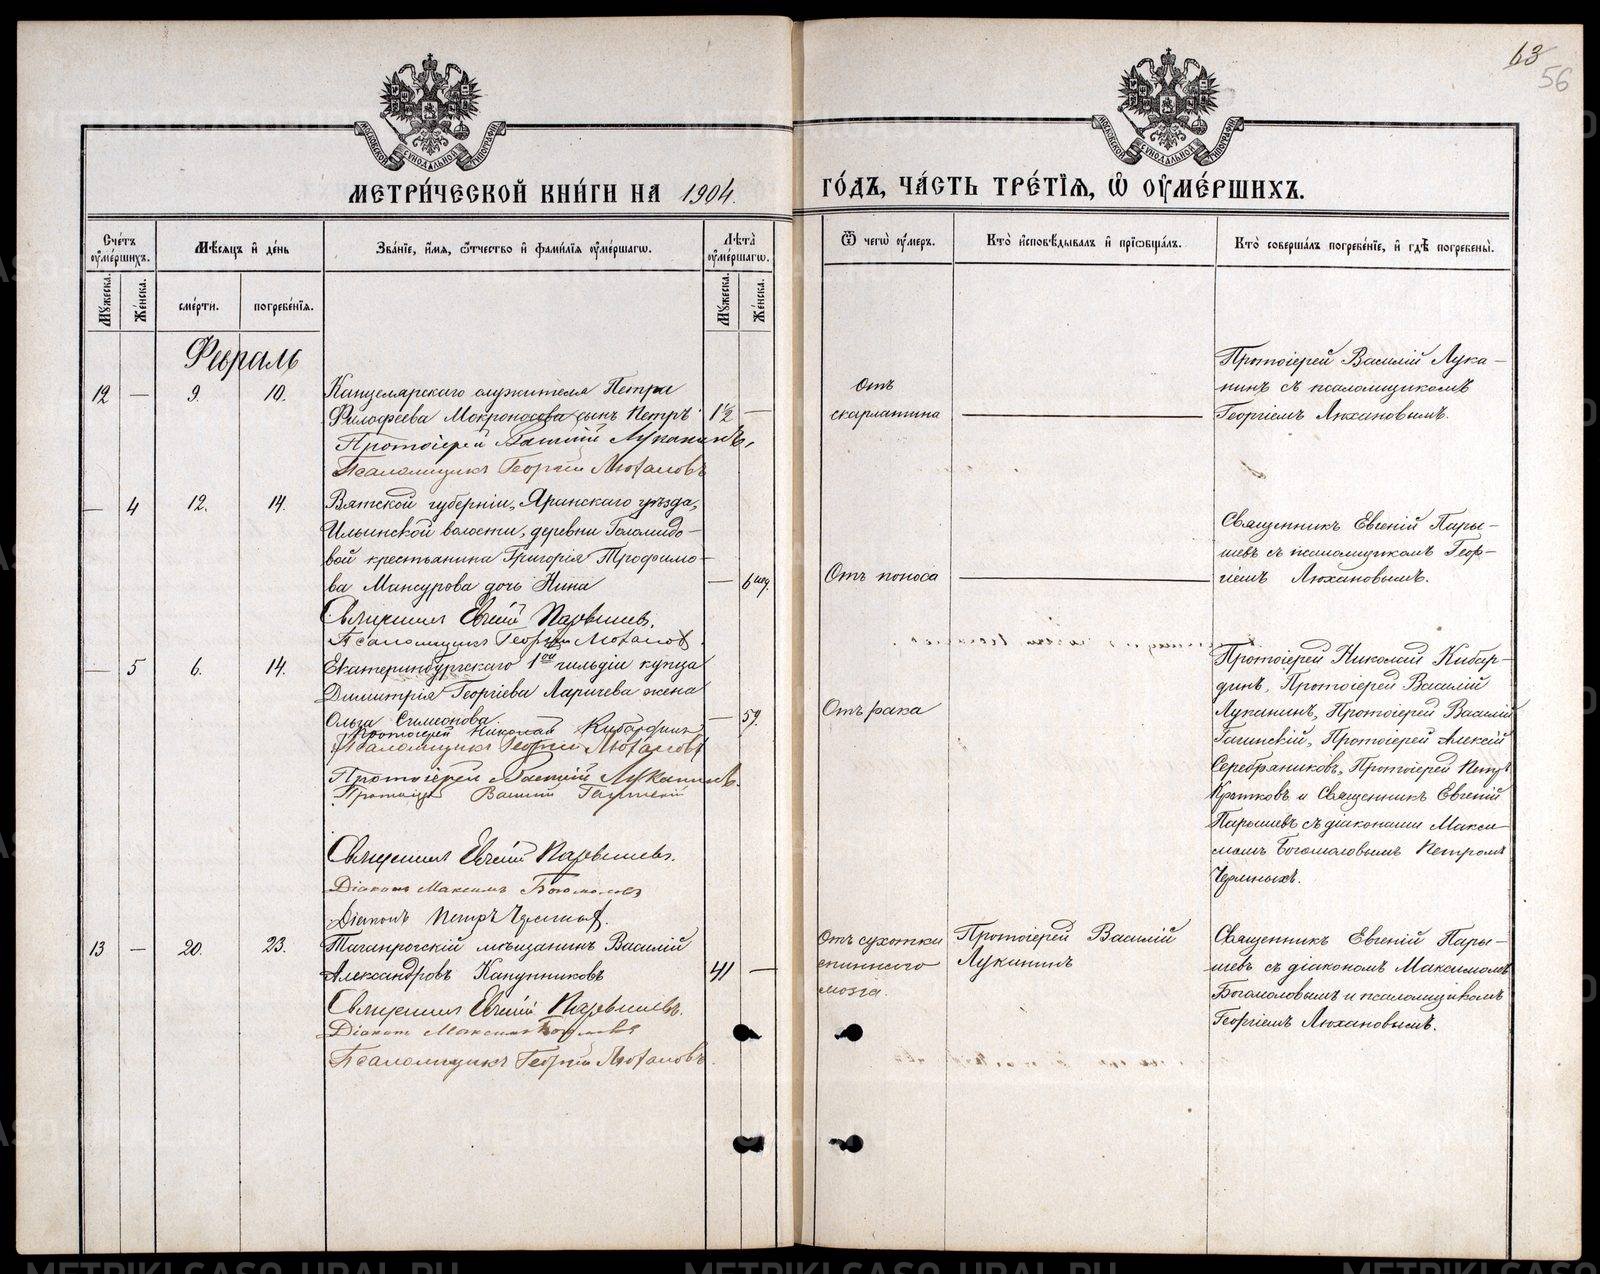 63
56
МОСКОВСКОЙ СУНОДАЛЬНОЙ ТИПОГРАФІИ
МОСКОВСКОЙ СУНОДАЛЬНОЙ ТИПОГРАФІИ
МЕТРИ́ЧЕСКОЙ КНИ́ГИ НА 1904.
ГО́ДЪ, ЧА́СТЬ ТРЕ́ТІЯ, Ѽ ОУМЕ́РШИХЪ.
Сче́тъ оуме́ршихъ.
Мѣ́сяцъ и де́нь
Зва́нїе, и́мя, ѻ́тчество и фами́лїя оуме́ршагѡ.
Лѣта̀ оуме́ршагѡ.
Ѿ чегѡ̀ оу́меръ.
Кто̀ исповѣ́дывалъ и прїѡбща́лъ.
Кто̀ соверша́лъ погребе́нїе, и гдѣ̀ погребены̀.
Му́жеска.
Же́нска.
сме́рти.
погребе́нїя.
Му́жеска.
Же́нска.
Февраль
12
—
9.
10.
Канцелярскаго служителя Петра
Филофеева Мокроносова сынъ Петръ
1½
—
Протоіерей Василій Луканинъ,
Псаломщикъ Георгій Люхановъ
Отъ
скарлатина
Протоіерей Василій Лука-
нинъ съ псаломщикомъ
Георгіемъ Люхановымъ.
—
4
12.
14.
Вятской губерніи, Яранскаго уѣзда,
Ильинской волости, деревни Голомидо-
вой крестьянина Григорія Трофимо-
ва Мансурова дочь Нина
—
Священникъ Евгеній Парышевъ.
Псаломщикъ Георгій Люханов
Отъ поноса
Священникъ Евгеній Пары-
шевъ съ псаломщикомъ Геор-
гіемъ Люхановымъ.
—
5
6.
14.
Екатеринбургскаго 1ой гильдіи купца
Димитрія Георгіева Ларичева жена
Ольга Симеонова
—
59.
Протоіерей Николай Кибардинъ
Псаломщикъ Георгій Люхановъ
Протоіерей Василій Луканинъ.
Протоіерей Василій Гагинскій
Священникъ Евгеній Парышевъ.
Діаконъ Максимъ Богомоловъ
Діаконъ Петръ Черныхъ.
Отъ рака
Протоіерей Николай Кибар-
динъ, Протоіерей Василій
Луканинъ, Протоіерей Василій
Гагинскій, Протоіерей Алексій
Серебряниковъ, Протоіерей Петръ
Кротковъ и Священникъ Евгеній
Парышевъ съ діаконами Макси-
момъ Богомоловымъ Петромъ
Черныхъ.
13
—
20.
23.
Таганрогскій мѣщанинъ Василій
Александровъ Капунниковъ
41
—
Священникъ Евгеній Парышевъ.
Діаконъ Максимъ Богомоловъ
Псаломщикъ Георгій Люхановъ.
Отъ сухотки
спинного
мозга.
Протоіерей Василій
Луканинъ
Священникъ Евгеній Пары-
шевъ съ діакономъ Максимомъ
Богомоловымъ и псаломщикомъ
Георгіемъ Люхановымъ.